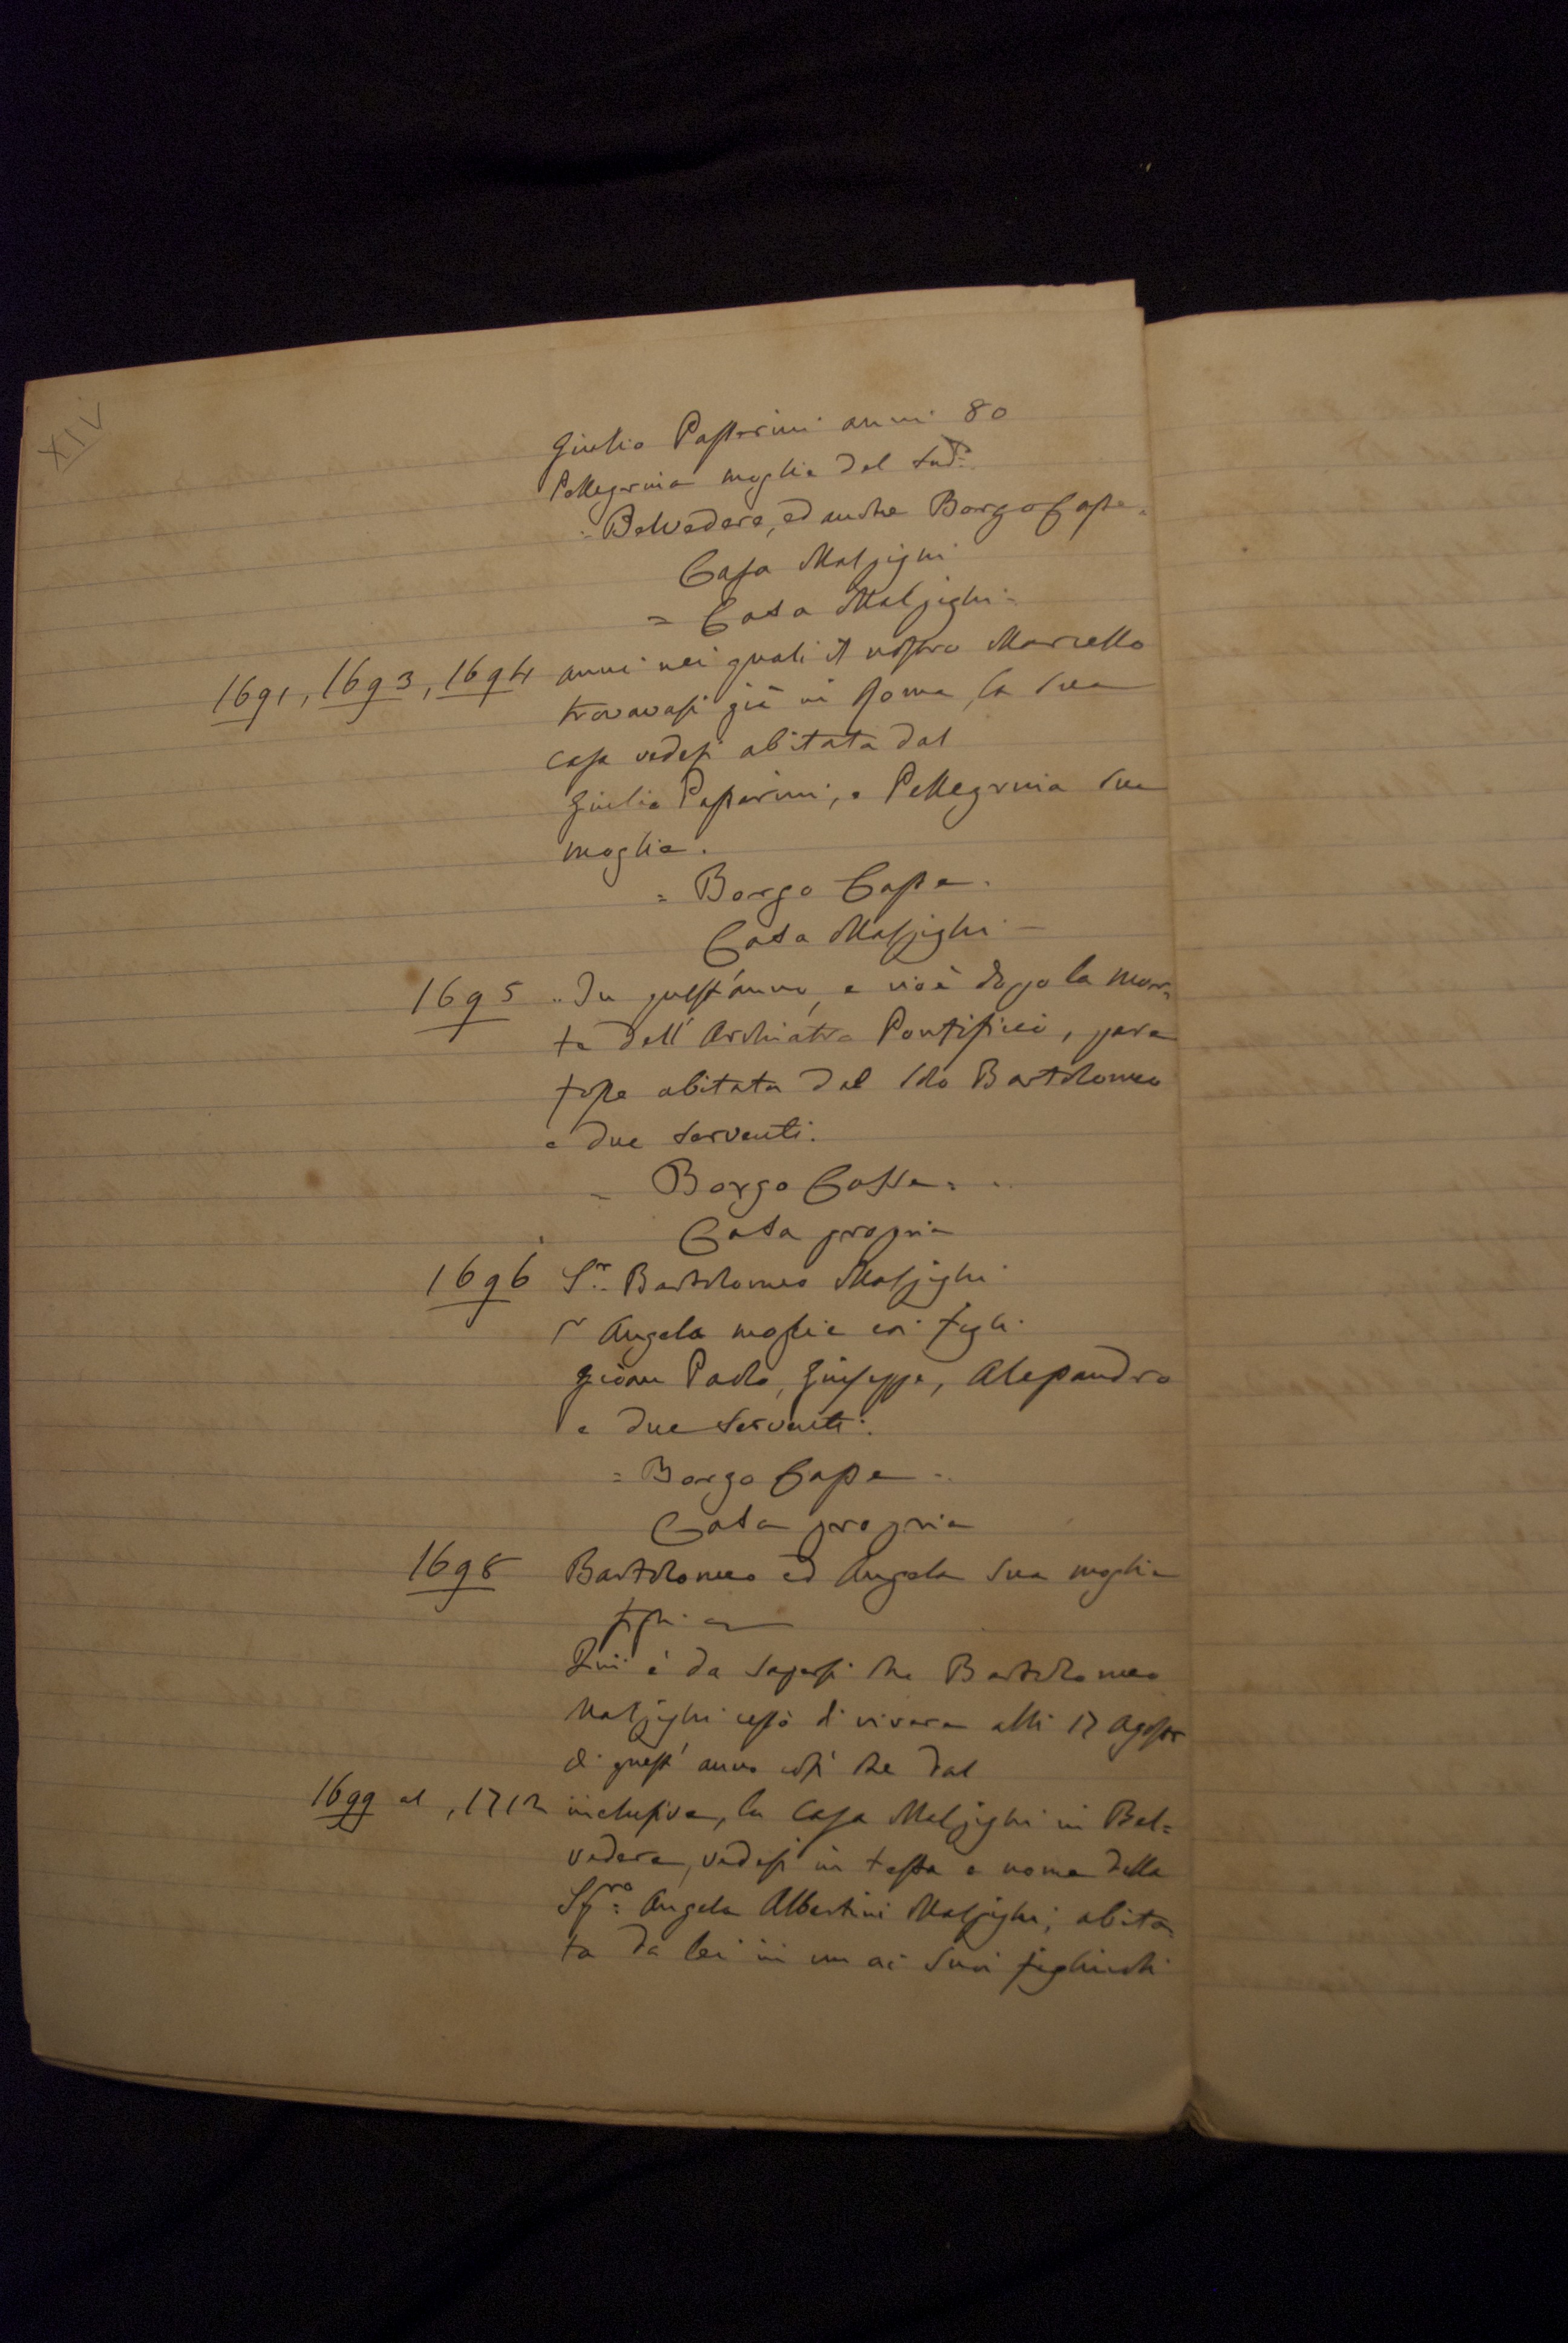 XIV
Giulio Passerini anni 80
Pellegrina moglie del sud.o
= Belvedere, ed anche Borgo Casse =
Casa Malpighi
= Casa Malpighi =
1691, 1693, 1694 anni nei quali il nostro Marcello
trovavasi già in Roma, la sua
casa vedesi abitata dal
Giulio Passerini, e Pellegrina sua
moglie.
= Borgo Casse.
Casa Malpighi -
1695 .. In quest'anno, e cioè dopo la mor=
te dell'Archiatro Pontificio, pare
fosse abitata dal solo Bartolomeo
e due serventi.
= Borgo Casse =
Casa propria
1696 S.r Bartolomeo Malpighi
Angela moglie coi figli
Gioan Paolo, Giuseppe, Alessandro
e due serventi.
= Borgo Casse =
Casa propria
1698 Bartolomeo ed Angela sua moglie
figli
Qui è da sapersi che Bartolomeo
Malpighi cessò di vivere alli 17 Agosto
di quest'anno così che dal
1699 al, 1712 inclusive, la Casa Malpighi in Bel=
vedere, vedesi in testa e nome della
Sig.ra Angela Albertini Malpighi; abita=
ta da lei in un ai suoi figliuoli